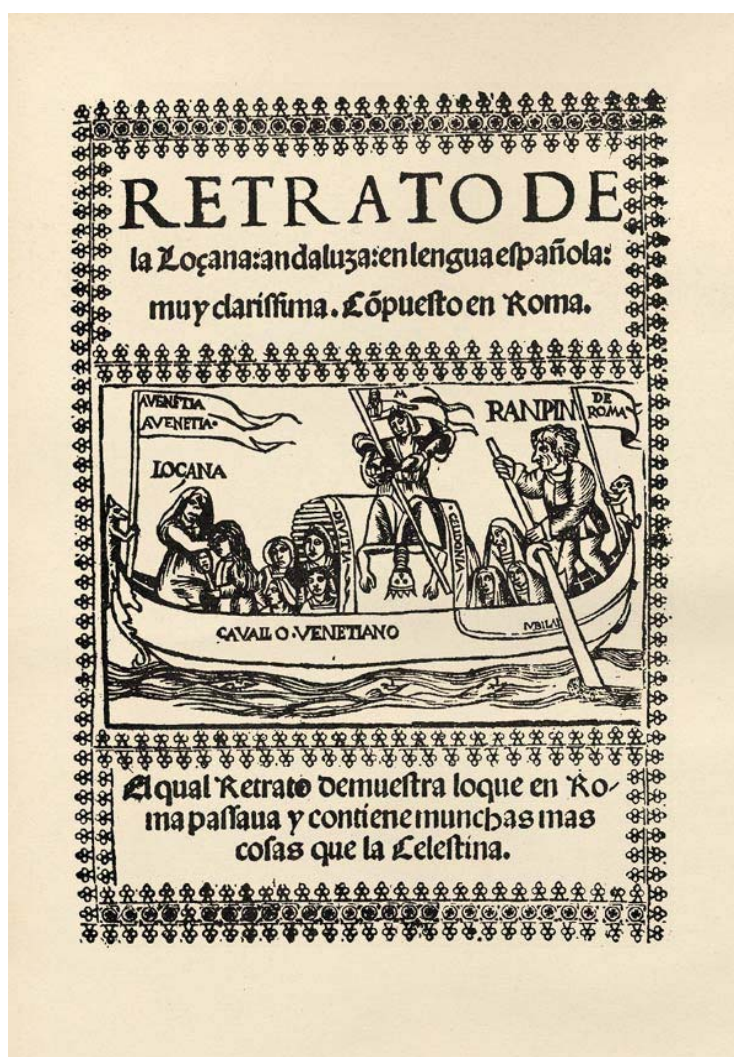 RETRATO DE
la Loçana: andaluza: en lengua española:
muy clarissima. Cõpuesto en Roma.
AVENETIA
AVENETIA.
LOÇANA
RANPIN
DE
ROMA
CAVALLO . VENETIANO
El qual Retrato demuestra loque en Ro/
ma passaua y contiene munchas mas
cosas que la Celestina.